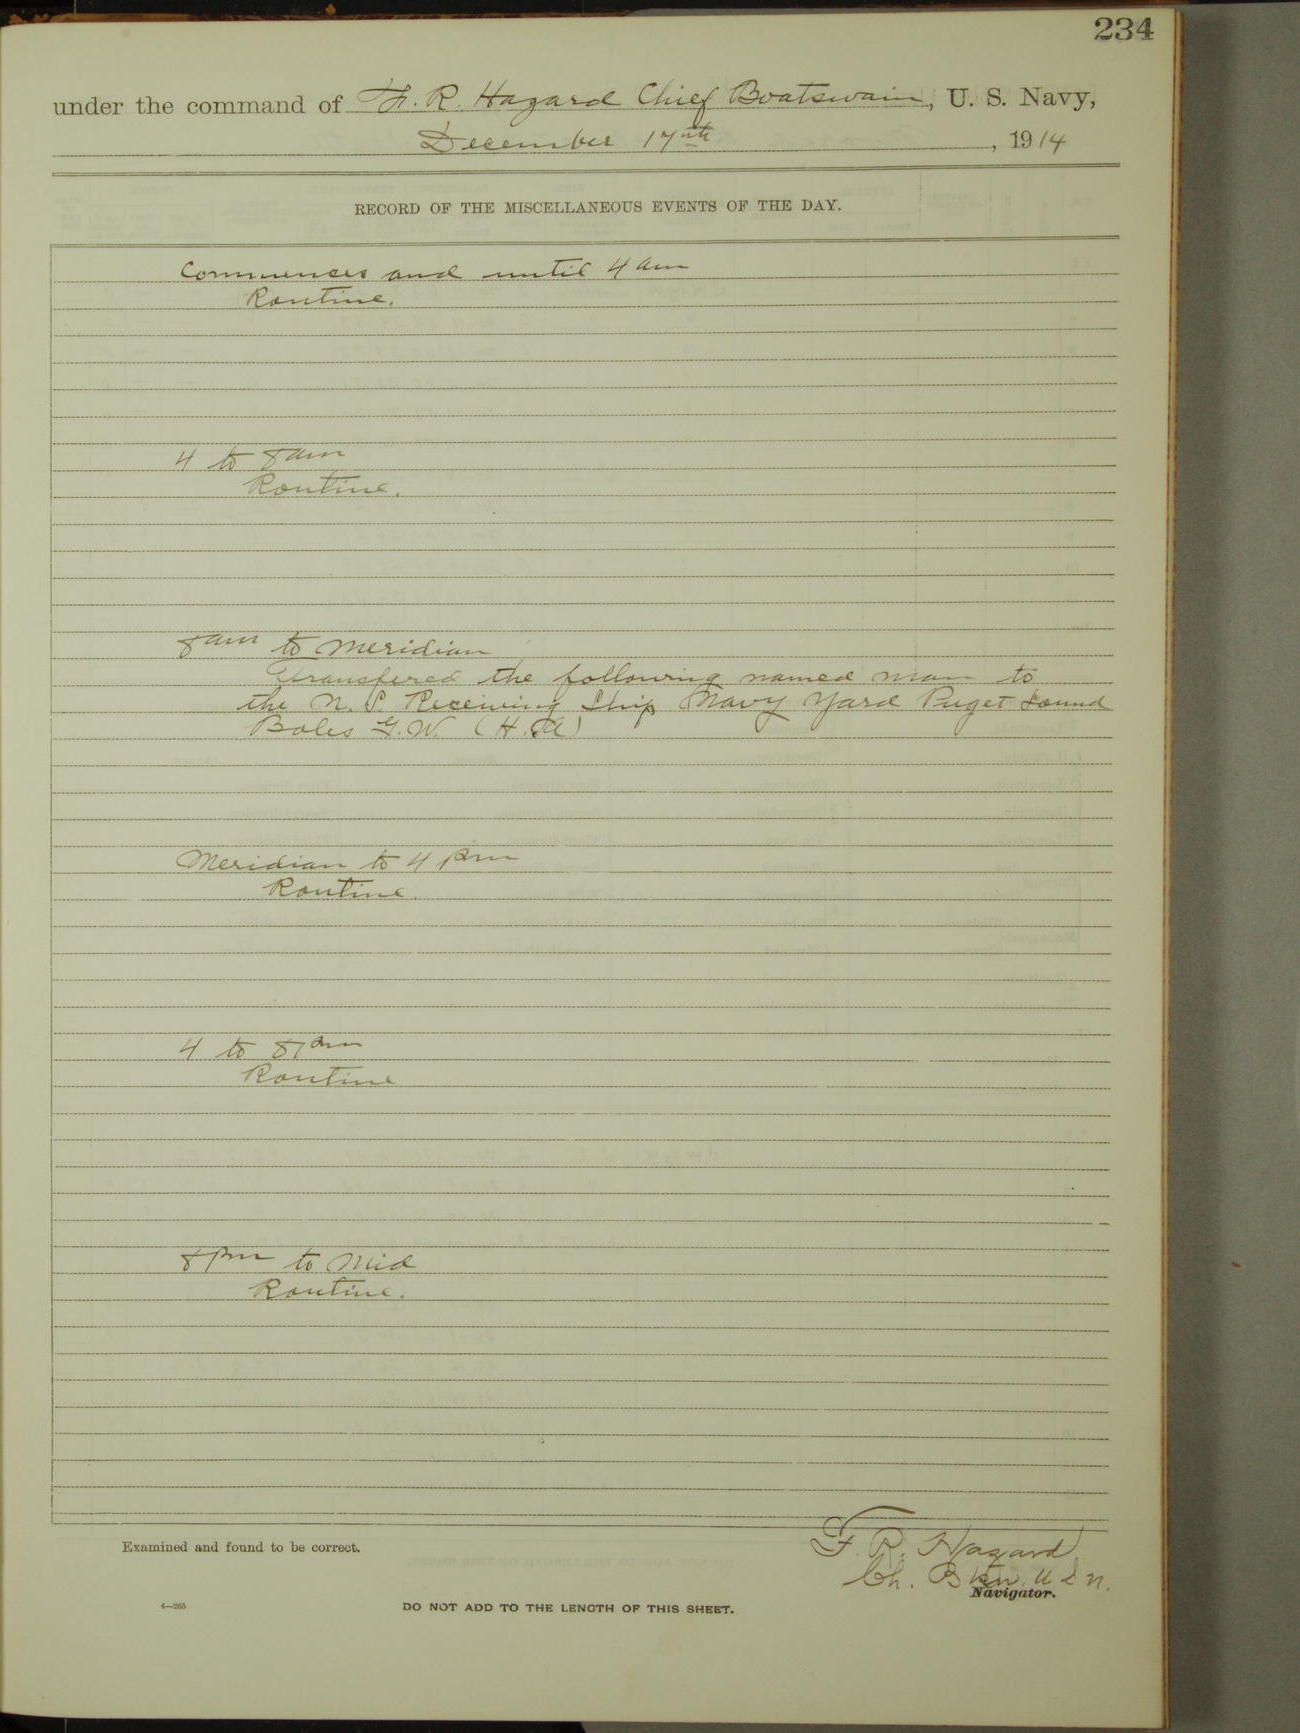 234
under the command of F. R. Hazard Chief Boatswain, U. S. Navy,
December 17th, 1914
RECORD OF THE MISCELLANEOUS EVENTS OF THE DAY.
Commences and until 4 am
Routine.
4 to 8 am
Routine.
8 am to Meridian
Transfered the following named man to
the N. P. Receiving Ship Navy Yard Puget Sound
Boles G. W. (H.A)
Meridian to 4 pm
Routine.
4 to 8 pm
Routine
8 pm to Mid
Routine.
Examined and found to be correct.
F. R. Hazard
Ch. Btsn. U S N.
Navigator.
4—265
DO NOT ADD TO THE LENGTH OF THIS SHEET.